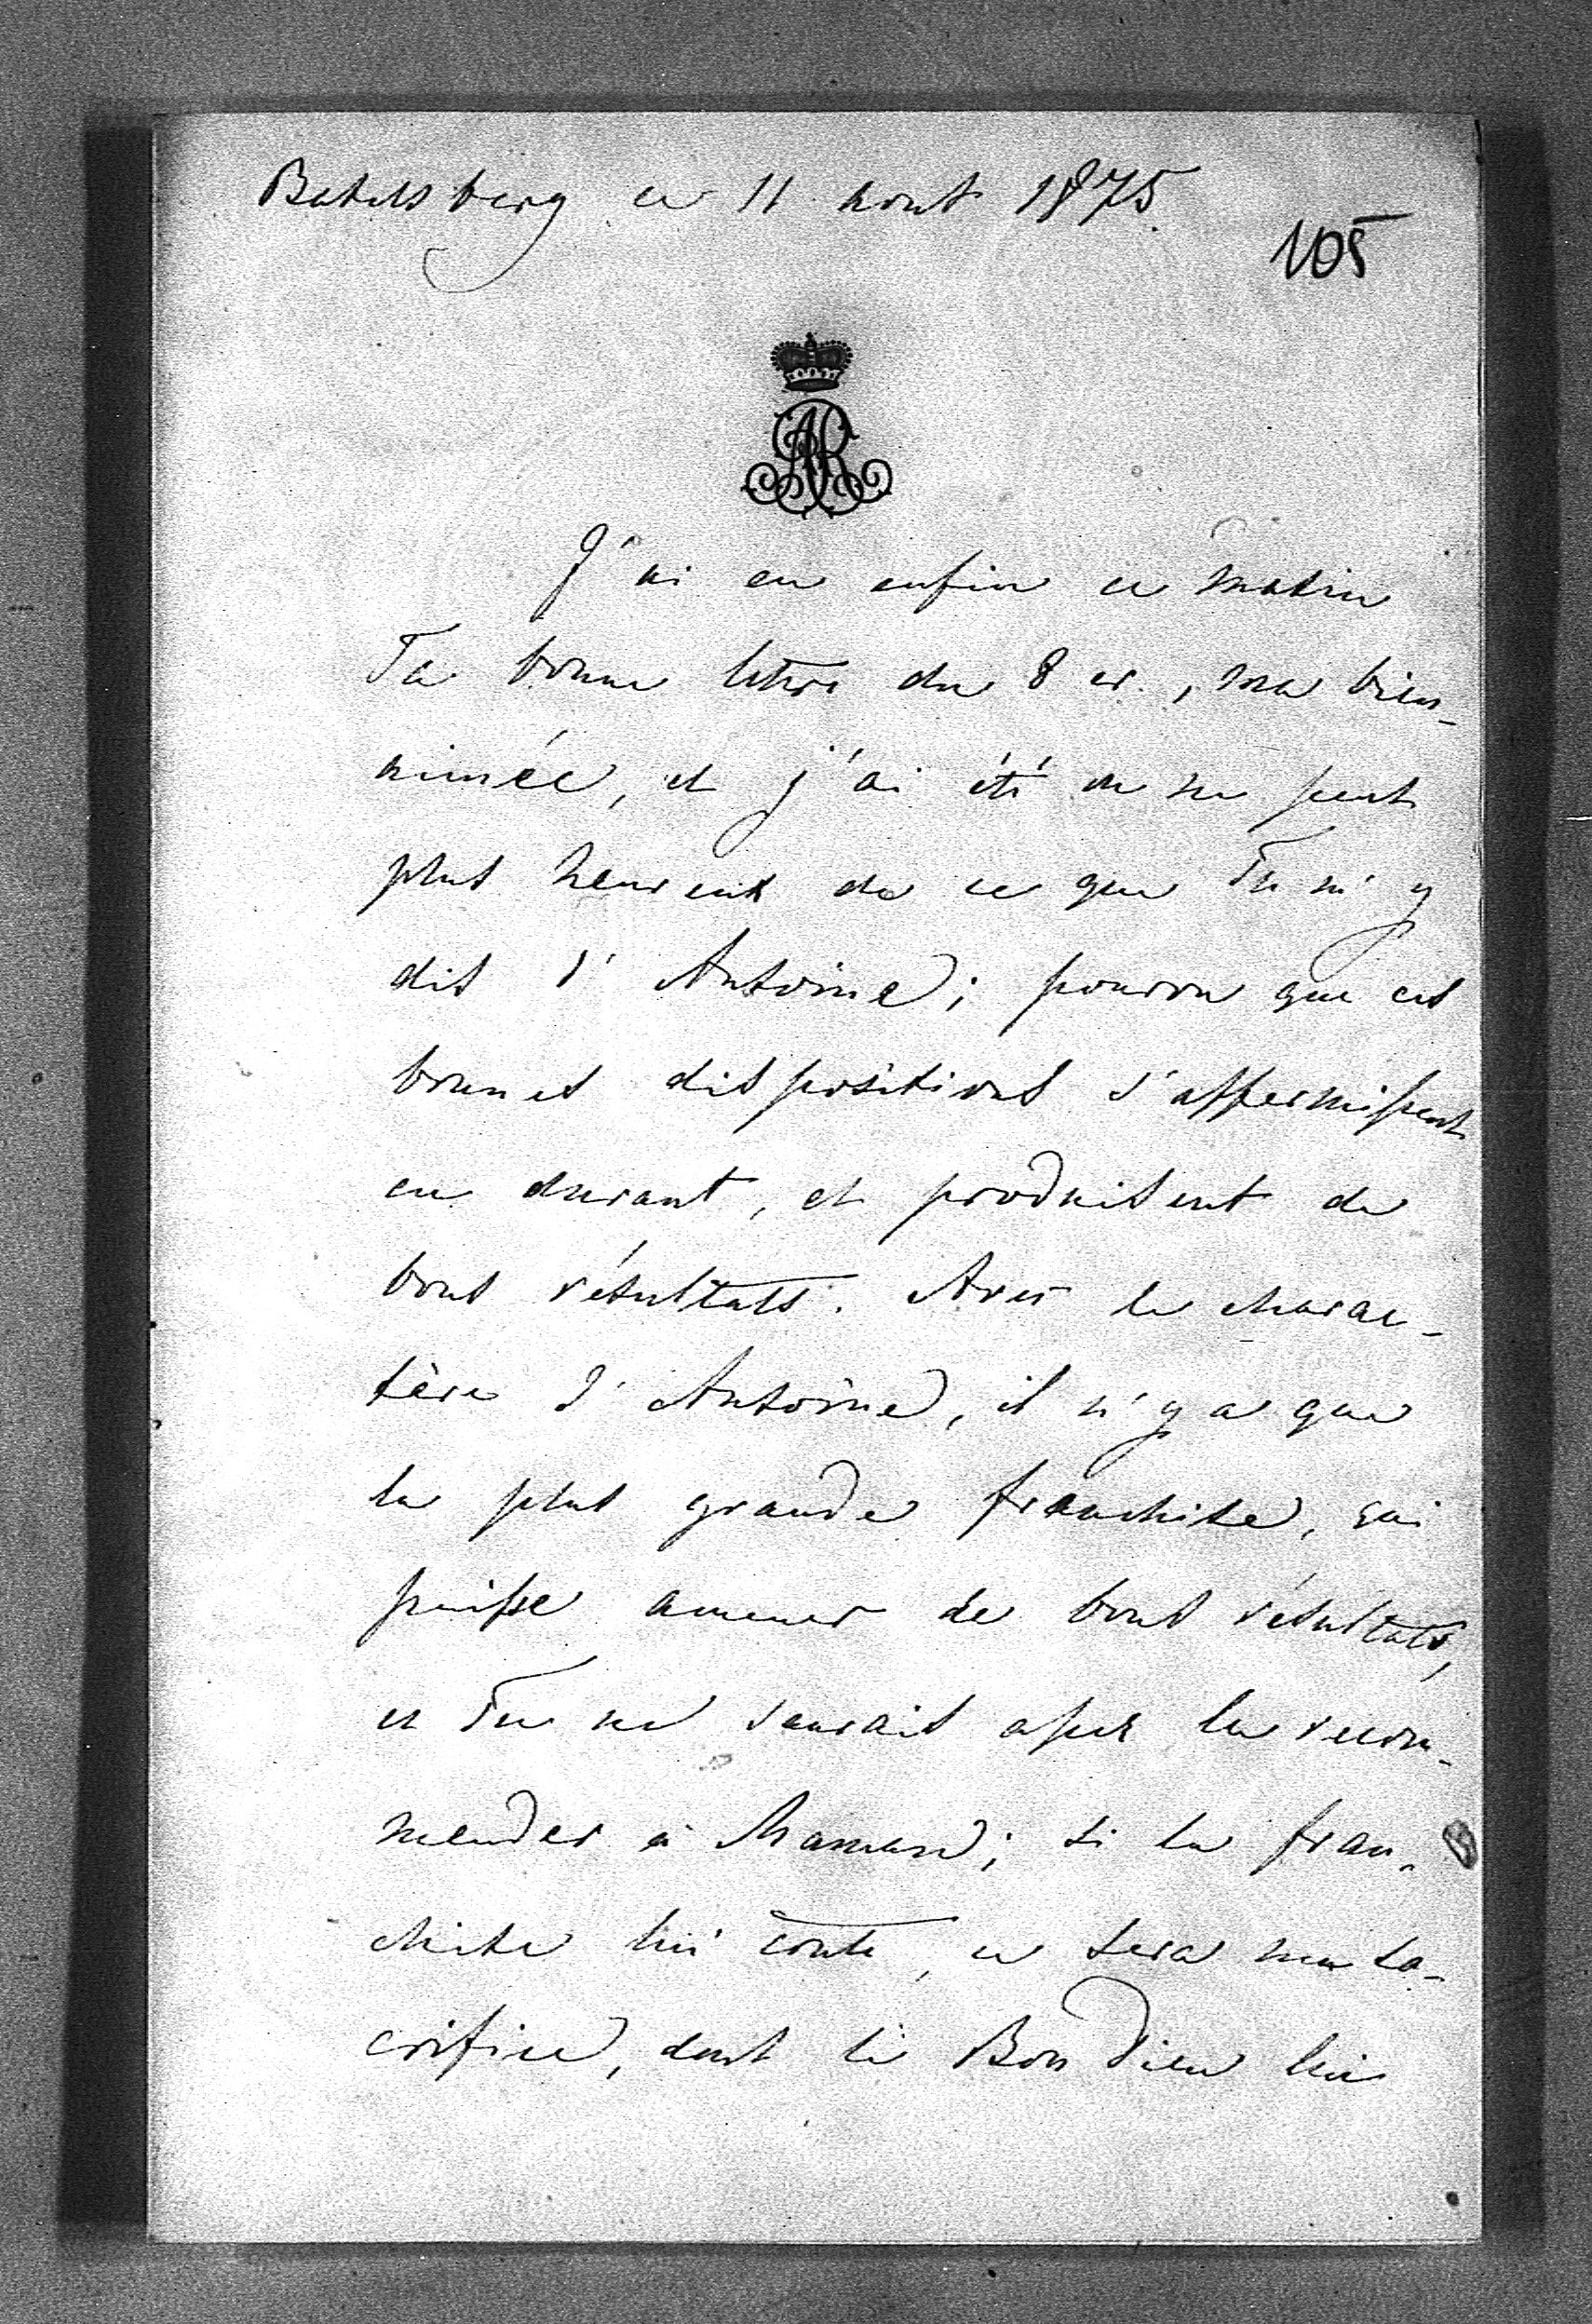 Babelsberg ce 11 aout 1875.
105
AR
J'ai eu enfin ce matin
Ta bonne lettre du 8 cr., ma bien-
aimée, et j'ai été on ne peut
plus heureux de ce que Tu m'y
dis d'Antoine; pourvu que ces
bonnes dispositions s'affermissent
en durant, et produisent de
bons résultats. Avec le charac-
tère d'Antoine, il n'y a que
la plus grande franchise, qui
puisse amener de bons résultats,
et Tu ne saurais assez la recom-
mender à Maman; si la fran-
chise lui coute, ce sera un sa-
crifice, dont le Bon Dieu lui